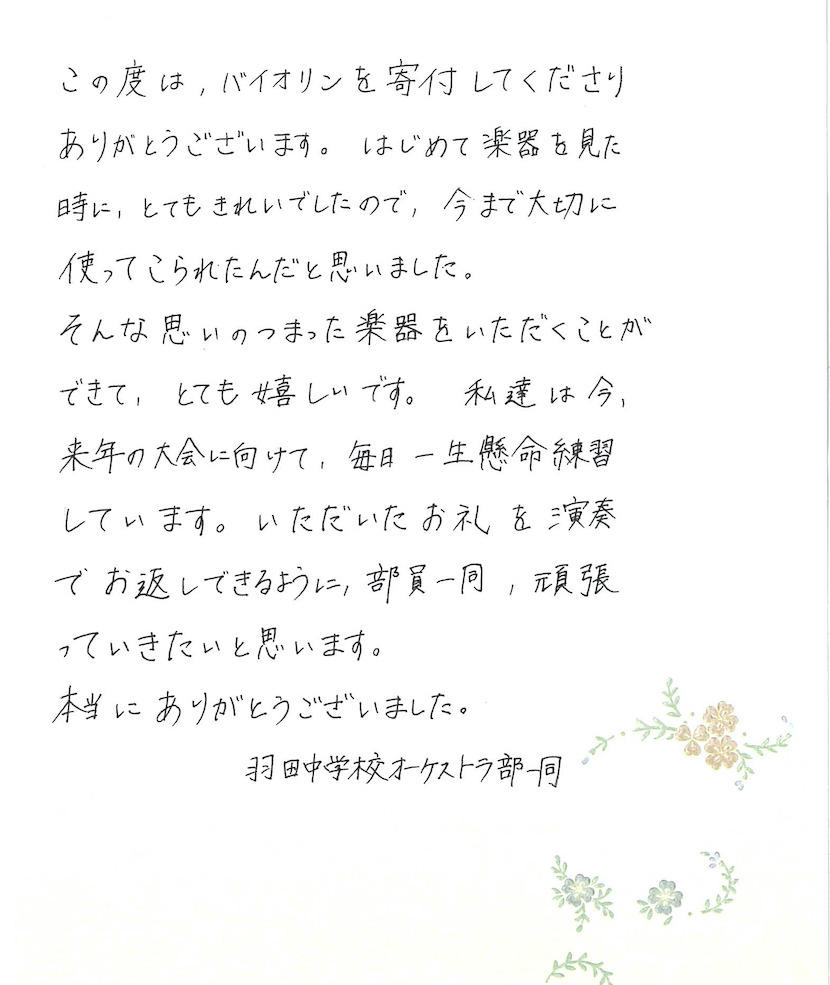 この度は,バイオリンを寄付してくださり
ありがとうございます。 はじめて楽器を見た
時に,とてもきれいでしたので,今まで大切に
使ってこられたんだと思いました。
そんな思いのつまった楽器をいただくことが
できて,とても嬉しいです。 私達は今,
来年の大会に向けて,毎日一生懸命練習
しています。いただいたお礼を演奏
でお返しできるように,部員一同,頑張
っていきたいと思います。
本当にありがとうございました。
羽田中学校オーケストラ部一同